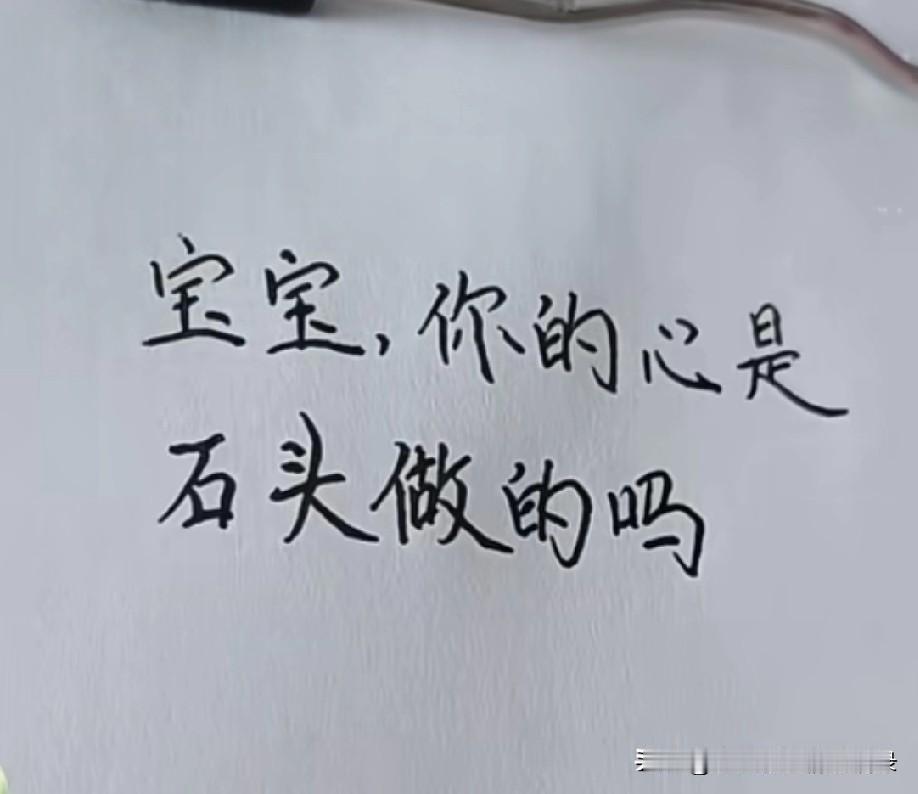 宝宝,你的心是
石头做的吗